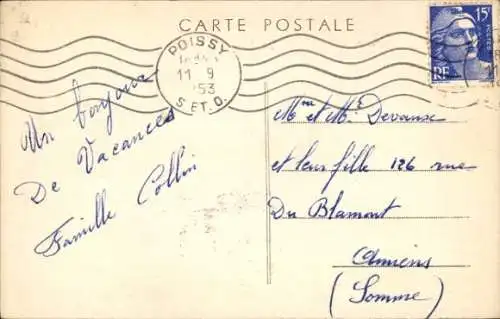 CARTE POSTALE
POISSY
11 9
53
S. ET. O.
15F
POSTES
RF
Un bonjour
De Vacances
Famille Collin
Mme et Mr Devaux
et leur fille 126 rue
Du Blamont
Amiens
(Somme)